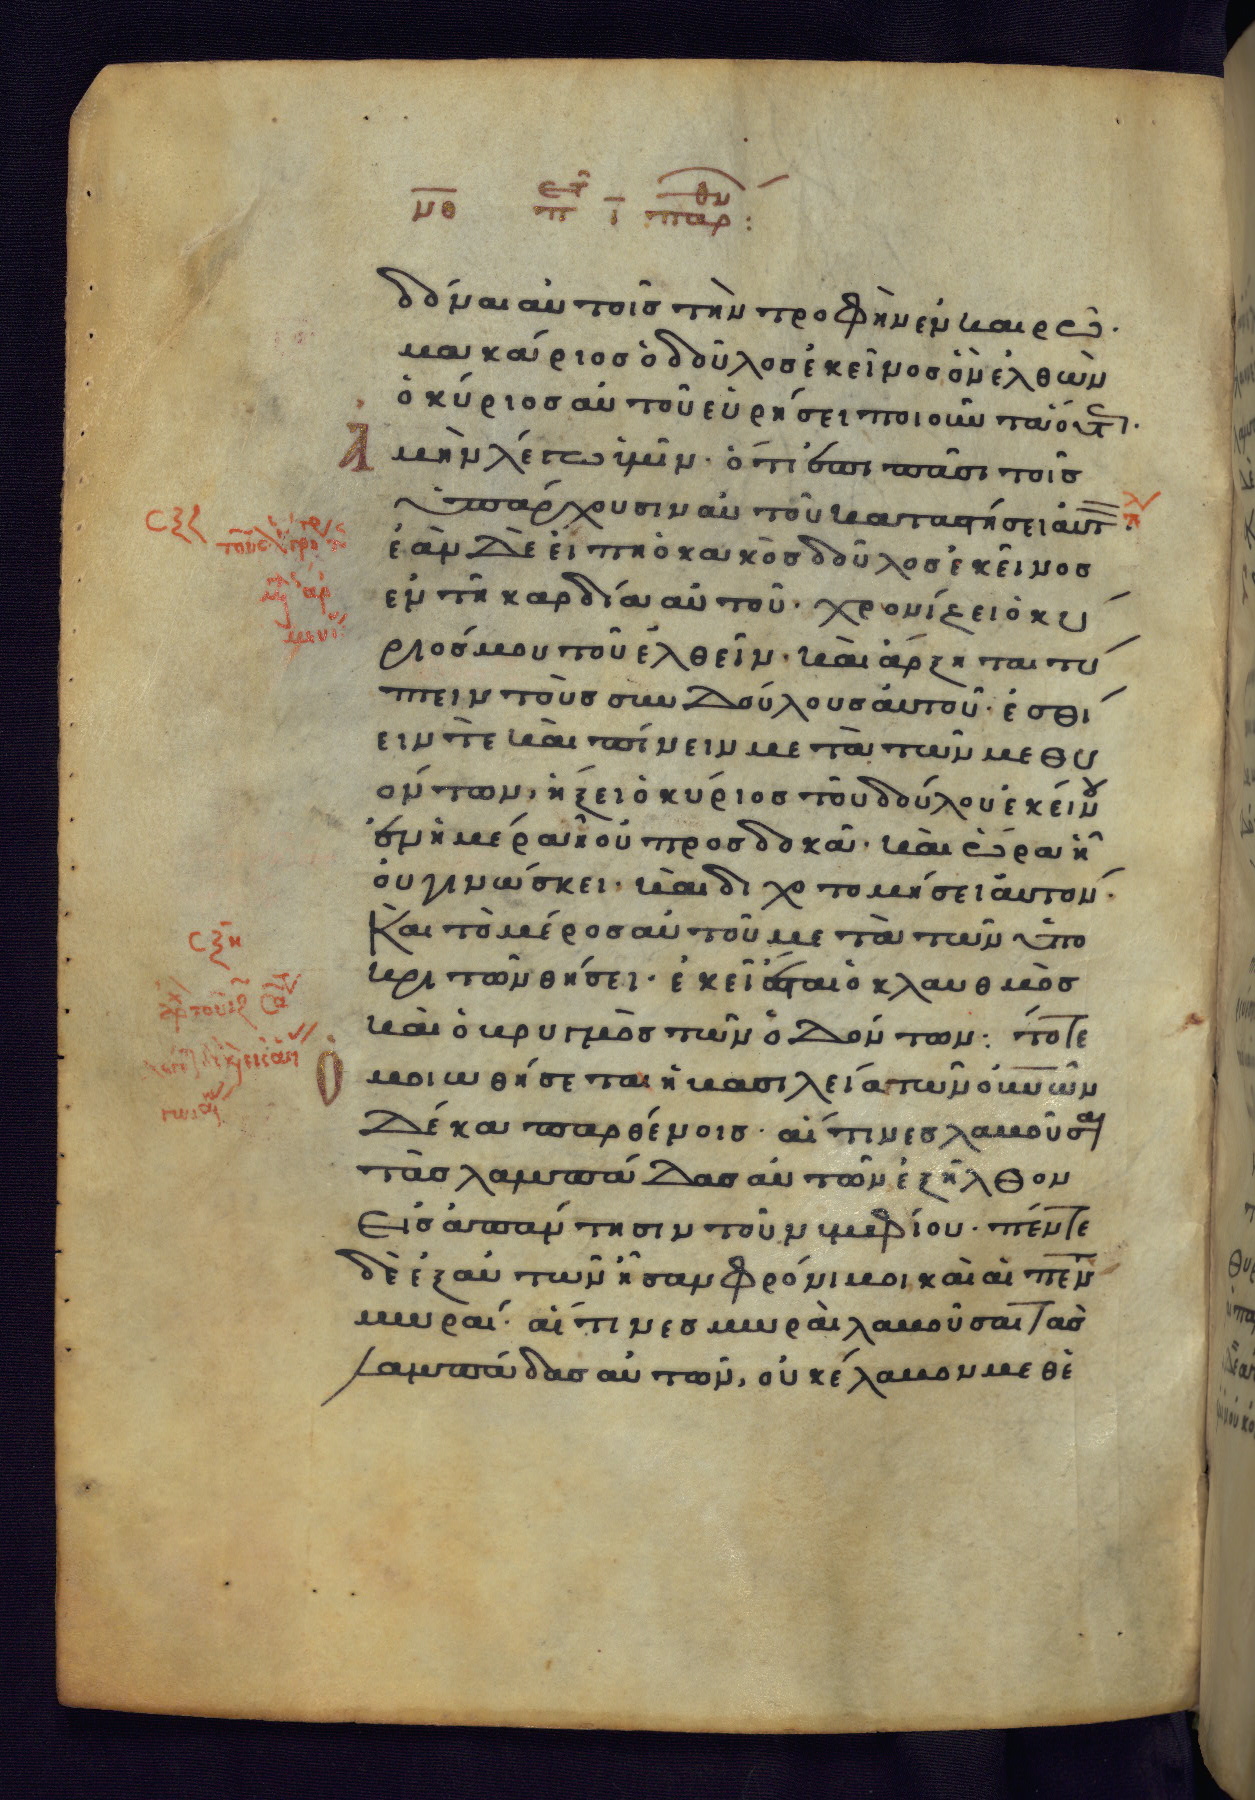 μθ π ι παρ θν
διδόναι αὐτοῖς τὴν τροφὴν ἐν καιρῶ.
μακάριος ὁ δοῦλος ἐκεῖνος ὃν ἐλθὼν
ὁ κύριος αὐτοῦ εὑρήσει ποιοῦντα οὕτως.
Ἀμὴν λέγω ὑμῖν. ὅτι ἐπὶ πᾶσι τοῖς
ὑπάρχουσιν αὐτοῦ καταστήσει αὐτόν.
ἐὰν δὲ εἴπη ὁ κακὸς δοῦλος ἐκεῖνος
ἐν τῆ καρδία αὐτοῦ. χρονίζει ὁ κύ
ριός μου τοῦ ἐλθεῖν. καὶ ἄρξηται τύ
πτειν τοὺς συνδούλους αὐτοῦ. ἐσθί
ειν τε καὶ πίνειν μετὰ τῶν μεθυ
όντων, ἥξει ὁ κύριος τοῦ δούλου ἐκείνου
ἐν ἡμέρα ἧ οὐ προσδοκᾶ. καὶ ὥρα ἧ
οὐ γινώσκει. καὶ διχοτομήσει αὐτόν.
Καὶ τὸ μέρος αὐτοῦ μετὰ τῶν ὑπο
κριτῶν θήσει. ἐκεῖ ἔσται ὁ κλαυθμὸς
καὶ ὁ βρυγμὸς τῶν ὀδόντων: τότε
Ὁμοιωθήσεται ἡ βασιλεία τῶν οὐνῶν
δέκα παρθένοις. αἵτινες λαβοῦσαι
τὰς λαμπάδας αὐτῶν ἐξῆλθον
εἰς ἀπάντησιν τοῦ νυμφίου. πέντε
δὲ ἐξ αὐτῶν ἦσαν φρόνιμοι καὶ αἱ πέντε
μωραί. αἵτινες μωραὶ λαβοῦσαι τὰς
λαμπάδας αὐτῶν, οὐκ ἔλαβον μεθ ἑ
σξζ
σξη